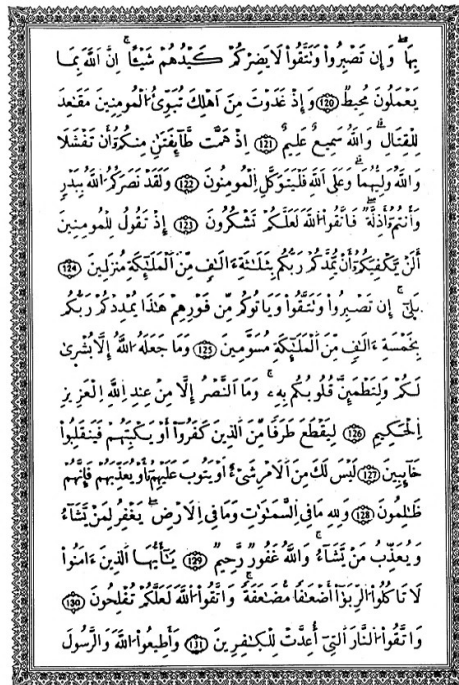 بِهَا ۖ وَإِن تَصْبِرُوا۟ وَتَتَّقُوا۟ لَا يَضِرْكُمْ كَيْدُهُمْ شَيْـًٔا ۗ اِنَّ اَللَّهَ بِمَا
يَعْمَلُونَ مُحِيطٌ (120) وَإِذْ غَدَوْتَ مِنَ اَهْلِكَ تُبَوِّئُ اُ۬لْمُومِنِينَ مَقَٰعِدَ
لِلْقِتَالِ ۗ وَاَللَّهُ سَمِيعٌ عَلِيمٌ (121) اِذْ هَمَّت طَّآئِفَتَٰنِ مِنكُمُۥٓ أَن تَفْشَلَا
وَاَللَّهُ وَلِيُّهُمَا ۗ وَعَلَى اَللَّهِ فَلْيَتَوَكَّلِ اِ۬لْمُومِنُونَ (122) وَلَقَدْ نَصَرَكُمُ اُ۬للَّهُ بِبَدْرٍ
وَأَنتُمُۥٓ أَذِلَّةٌ ۖ فَاتَّقُوا۟ اُ۬للَّهَ لَعَلَّكُمْ تَشْكُرُونَ (123) إِذْ تَقُولُ لِلْمُومِنِينَ
أَلَنْ يَّكْفِيَكُمُۥٓ أَنْ يُّمِدَّكُمْ رَبُّكُم بِثَلَٰثَةِ ءَالَٰفٍ مِّنَ اَ۬لْمَلَٰٓئِكَةِ مُنزَلِينَ (124)
بَلَىٰٓ ۚ إِن تَصْبِرُوا۟ وَتَتَّقُوا۟ وَيَاتُوكُم مِّن فَوْرِهِمْ هَٰذَا يُمْدِدْكُمْ رَبُّكُم
بِخَمْسَةِ ءَالَٰفٍ مِّنَ اَ۬لْمَلَٰٓئِكَةِ مُسَوَّمِينَ (125) وَمَا جَعَلَهُ اُ۬للَّهُ إِلَّا بُشْر۪ىٰ
لَكُمْ وَلِتَطْمَئِنَّ قُلُوبُكُم بِهِۦ ۗ وَمَا اَ۬لنَّصْرُ إِلَّا مِنْ عِندِ اِ۬للَّهِ اِ۬لْعَزِيزِ
اِ۬لْحَكِيمِ (126) لِيَقْطَعَ طَرَفًا مِّنَ اَ۬لذِينَ كَفَرُوٓا۟ أَوْ يَكْبِتَهُمْ فَيَنقَلِبُوا۟
خَآئِبِينَ (127) لَيْسَ لَكَ مِنَ اَ۬لَامْرِ شَےْءٌ اَوْ يَتُوبَ عَلَيْهِمُۥٓ أَوْ يُعَذِّبَهُمْ فَإِنَّهُمْ
ظَٰلِمُونَ (128) وَلِلهِ مَا فِے اِ۬لسَّمَٰوَٰتِ وَمَا فِے اِ۬لَارْضِ ۖ يَغْفِرُ لِمَنْ يَّشَآءُ
وَيُعَذِّبُ مَنْ يَّشَآءُ ۗ وَاَللَّهُ غَفُورٌ رَّحِيمٌ (129) يَٰٓأَيُّهَا اَ۬لذِينَ ءَامَنُوا۟
لَا تَاكُلُوا۟ اُ۬لرِّبَوٰٓا۟ أَضْعَٰفًا مُّضَٰعَفَةً ۖ وَاتَّقُوا۟ اُ۬للَّهَ لَعَلَّكُمْ تُفْلِحُونَ (130)
وَاتَّقُوا۟ اُ۬لنَّارَ اَ۬لتِےٓ أُعِدَّتْ لِلْكٰ۪فِرِينَ (131) وَأَطِيعُوا۟ اُ۬للَّهَ وَالرَّسُولَ